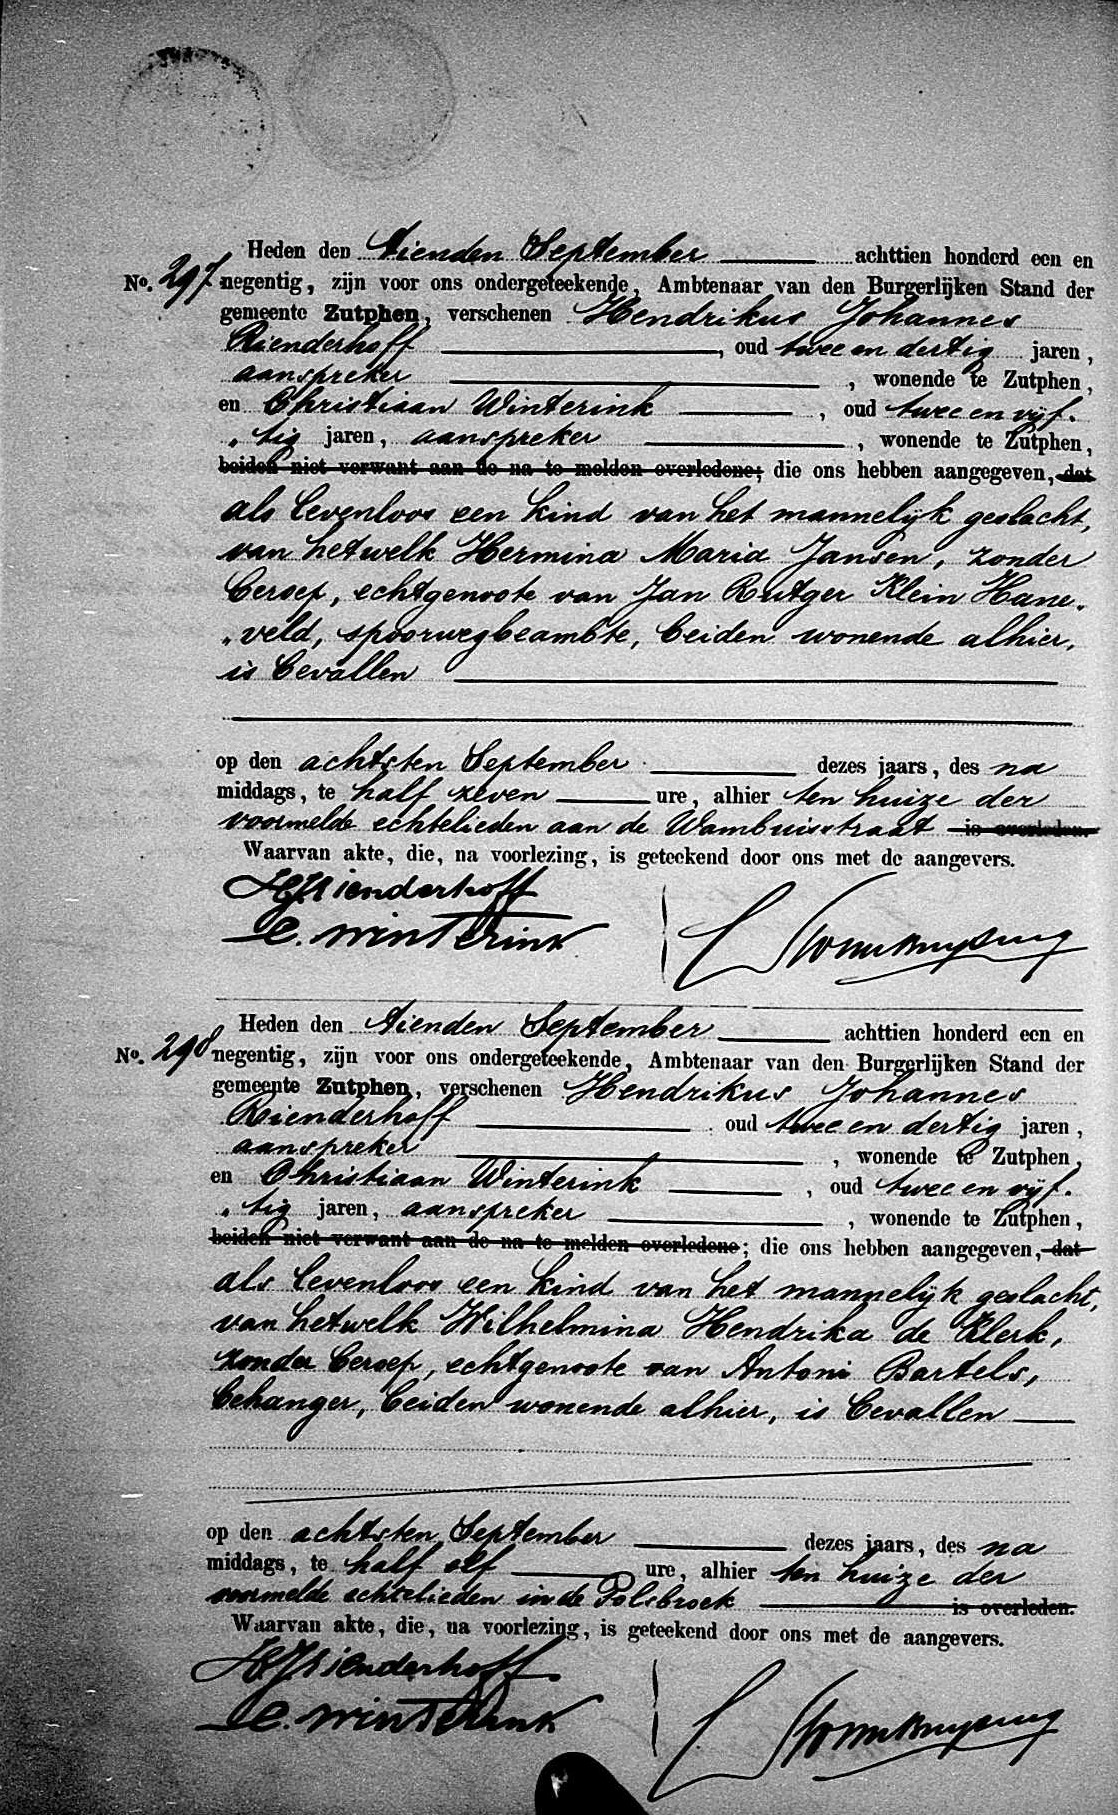 Heden den tienden September achttien honderd een en
No. 297 negentig, zijn voor ons ondergeteekende, Ambtenaar van den Burgerlijken Stand der
gemeente Zutphen, verschenen Hendrikus Johannes
Rienderhoff, oud twee en dertig jaren,
aanspreker, wonende te Zutphen,
en Christiaan Winterink, oud twee en vijf-
„tig jaren, aanspreker, wonende te Zutphen,
beiden niet verwant aan de na te melden overledene; die ons hebben aangegeven, dat
als levenloos een kind van het mannelijk geslacht,
van hetwelk Hermina Maria Jansen, zonder
beroep, echtgenoote van Jan Rutger Klein Hane-
„veld, spoorwegbeambte, beiden wonende alhier,
is bevallen
op den achtsten September dezes jaars, des na
middags, te half zeven ure, alhier ten huize der
voormelde echtelieden aan de Wambuisstraat is overleden.
Waarvan akte, die, na voorlezing, is geteekend door ons met de aangevers.
HJRienderhoff
C. Winterink
Heden den tienden September achttien honderd een en
No. 298 negentig, zijn voor ons ondergeteekende, Ambtenaar van den Burgerlijken Stand der
gemeente Zutphen, verschenen Hendrikus Johannes
Rienderhoff oud twee en dertig jaren,
aanspreker, wonende te Zutphen,
en Christiaan Winterink, oud twee en vijf-
„tig jaren, aanspreker, wonende te Zutphen,
beiden niet verwant aan de na te melden overledene; die ons hebben aangegeven, dat
als levenloos een kind van het mannelijk geslacht,
van hetwelk Wilhelmina Hendrika de Klerk,
zonder beroep, echtgenoote van Antoni Bartels,
behanger, beiden wonende alhier, is bevallen
op den achtsten September dezes jaars, des na
middags, te half elf ure, alhier ten huize der
voormelde echtelieden in de Polsbroek is overleden.
Waarvan akte, die, na voorlezing, is geteekend door ons met de aangevers.
HJRienderhoff
C. Winterink